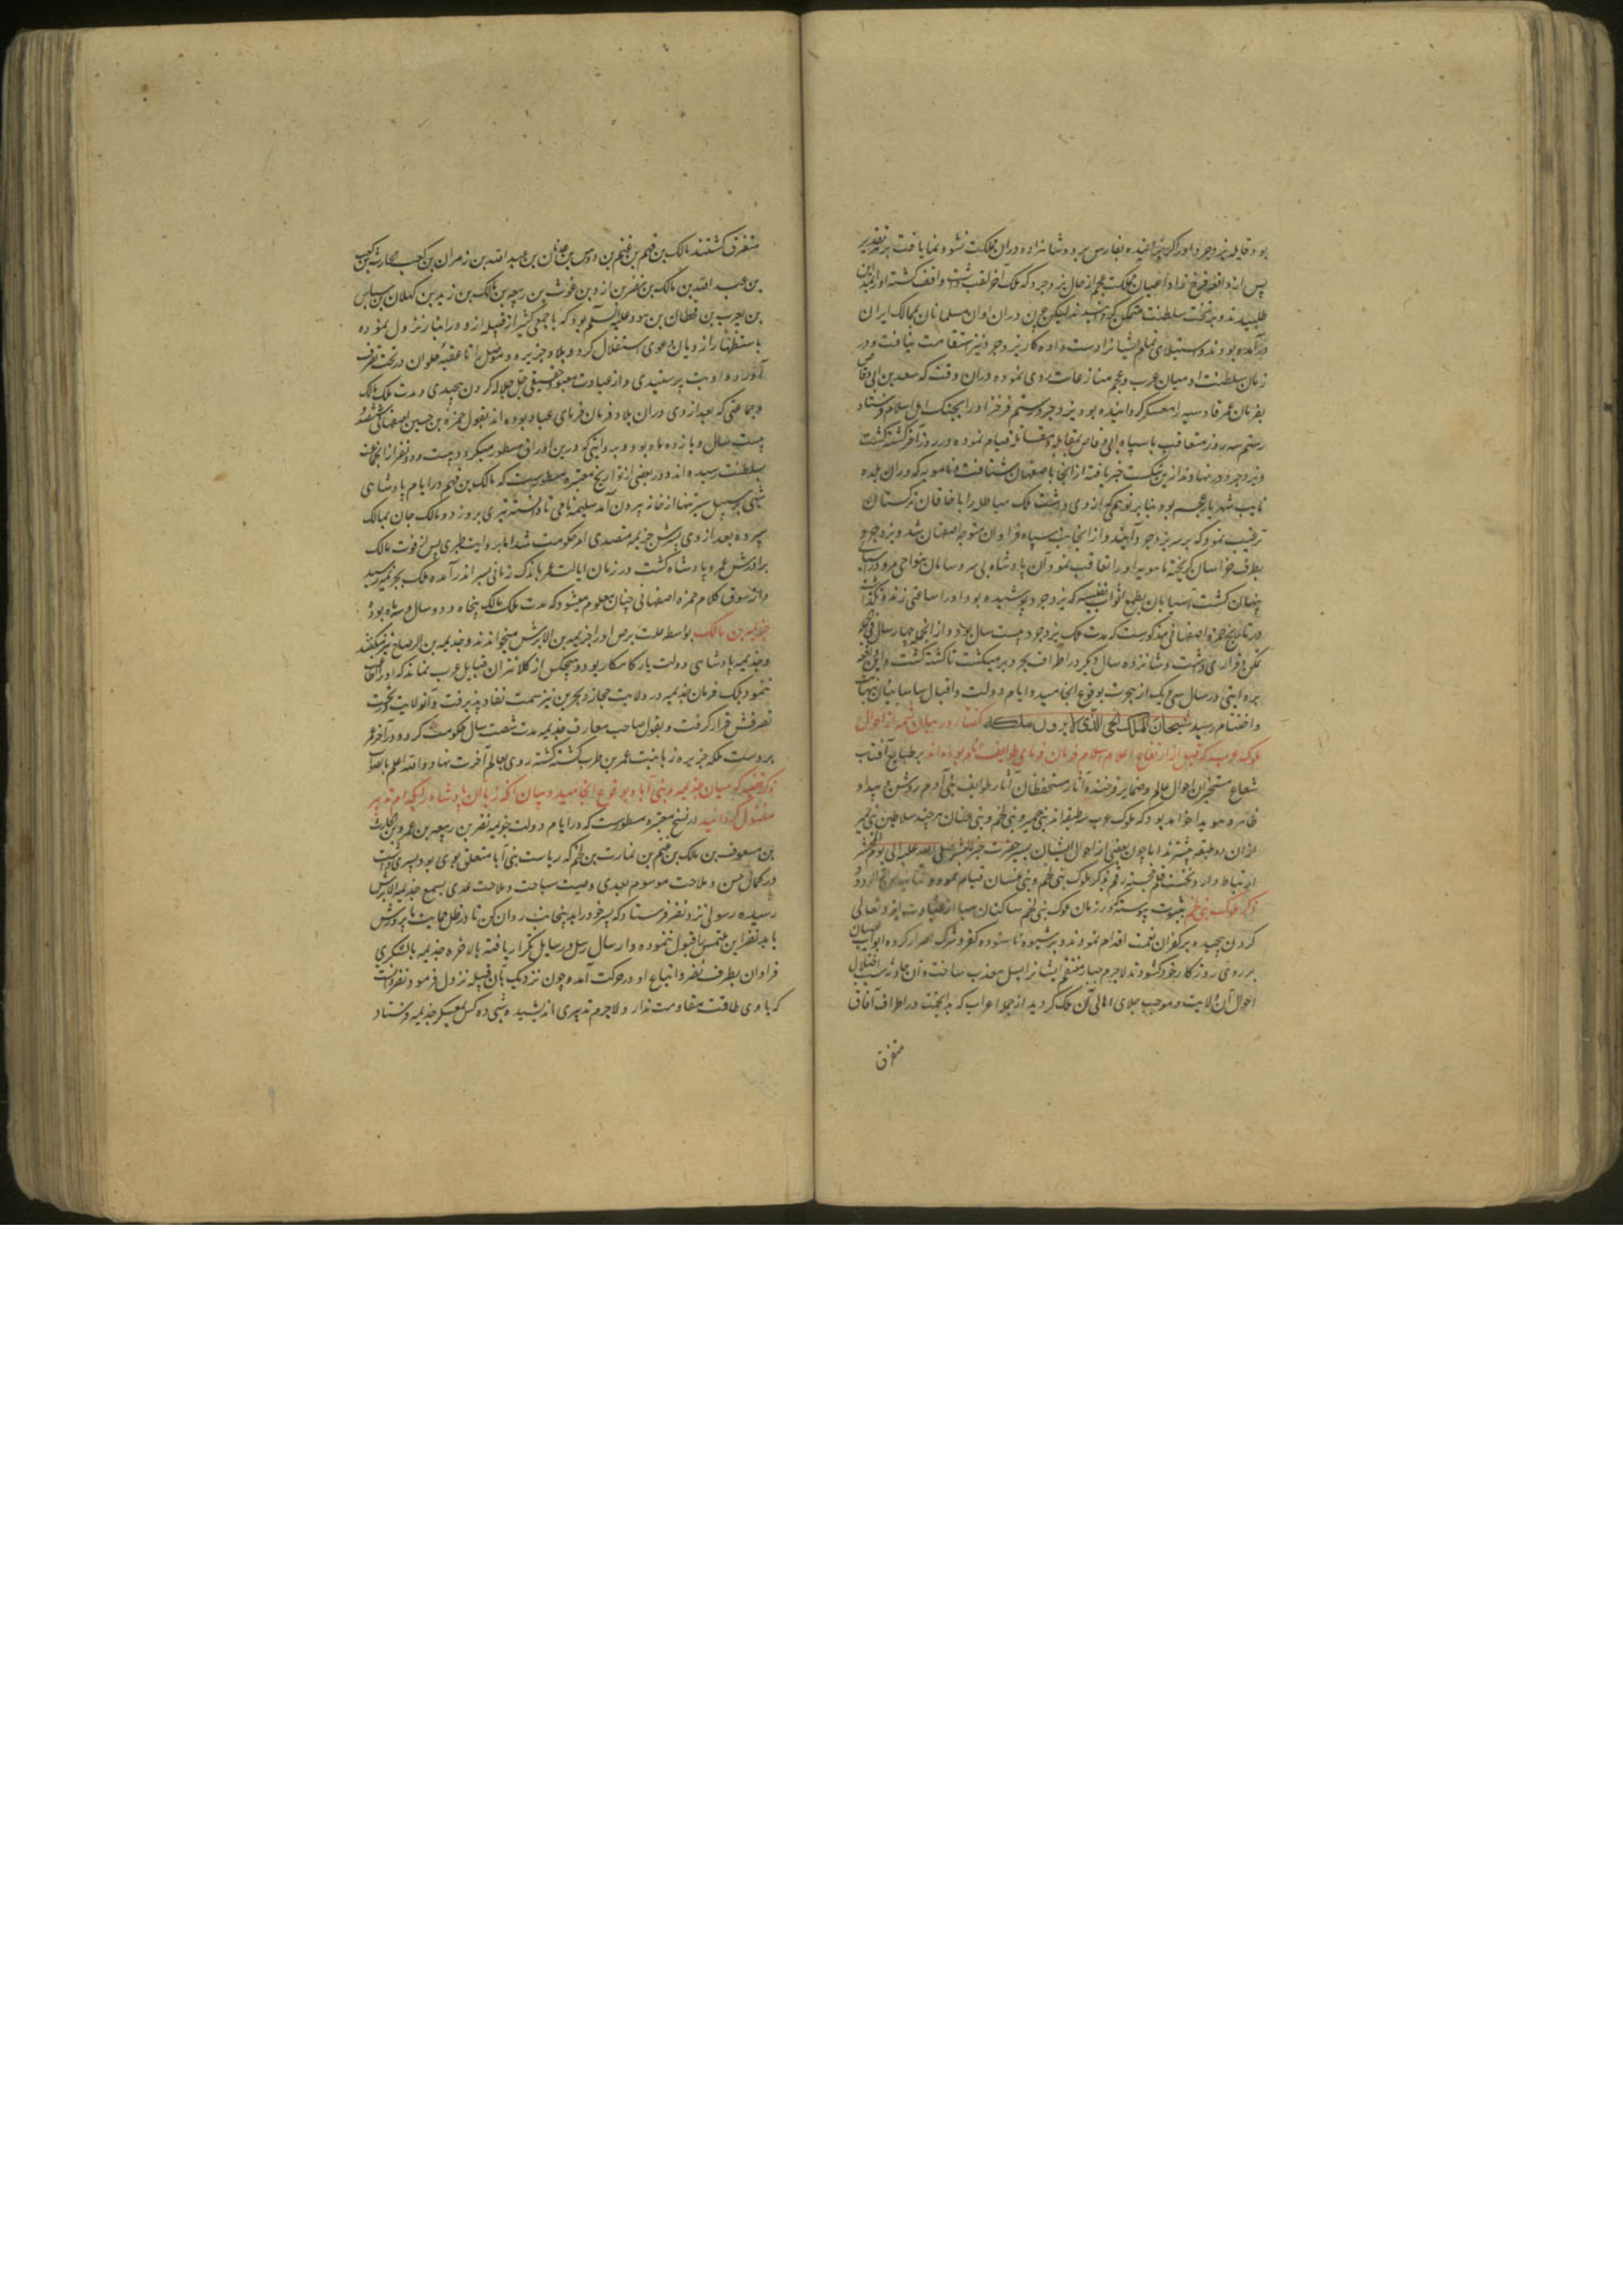 بود قابله یزدجرد را بفارس برده شاهزاده دران مملکت نشو و نما یافت
پس از واقعه فرخ زاد اعیان مملکت عجم از حال یزدجرد که ملک آخر لقب داشت واقف کشته اورا
طلبیدند و بر تخت سلطنت متمکن کردانیدند لیکن چون دران اوان مسلمانان بممالک ایران
درآمده بودند و استیلای تمام ایشانرا دست داده کار یزدجرد نیز استقامت نیافت و در
زمان سلطنت او میان عرب و عجم منازعات روی نموده دران وقت که سعد بن ابی وقاص
بفرمان عمر قادسیه را معسکر کردانیده بود یزدجرد رستم فرخزاد را بجنک اهل اسلام فرستاد
رستم سه روز متعاقب با سپاه ابی وقاص بمقابله و مقاتله قیام نموده در روز آخر کشته کشت
و یزدجرد در نهاوند ازین شکست خبر یافته از انجا باصفهان شتافت و ماهویه که دران بلده
نایب شهریار عجم بود بنابر توهمی که از وی داشت ملک هیاطله را با خاقان ترکستان
ترغیب نمود که بر سر یزدجرد آیند و از انجانب سپاه فراوان متوجه اصفهان شد و یزدجرد
بطرف خراسان کریخته ماهویه اورا تعاقب نمود و آن پادشاه بی سر و سامان بنواحی مرو در آسیا
پنهان کشت آسیابان بطمع اثواب نفیسه که یزدجرد پوشیده بود اورا ساعتی زنده نکذاشت
در تاریخ حمزه اصفهانی مذکورست که مدت ملک یزدجرد بیست سال بود و از انجمله چهار سال
تمکن و قراری داشت و شانزده سال دیکر در اطراف بحر و بر میکشت تا کشته کشت و این واقعه
بروایتی در سال سی و یک از هجرت بوقوع انجامید و ایام دولت و اقبال ساسانیان بنهایت
و اختتام رسید سبحان الملک الحی الذی لا یزول ملکه کفتار در بیان شمه از احوال
ملوک عرب که قبل از ارتفاع اعلام اسلام فرمان فرمای طوایف بوده اند بر طبایع آفتاب
شعاع مستخبران احوال عالم و ضمایر فرخنده آثار مستحفظان آثار طوایف بنی آدم روشن و هویدا
ظاهر و هویدا خواهد بود که ملوک عرب سه طبقه اند بنی حمیر و بنی لخم و بنی غسان هر چند سلاطین بنی حمیر
ازان دو طبقه بیشترند اما چون بعضی از احوال ایشان بسیر حضرت خیر البشر صلی الله علیه الی یوم المحشر
ارتباط دارد نخست قلم خجسته رقم بذکر ملوک بنی لخم و بنی غسان قیام نموده
ذکر ملوک بنی لخم بثبوت پیوسته که در زمان ملوک بنی لخم ساکنان سبا از عبادت ایزد تعالی
کردن پیچیده بر کفران نعمت اقدام نمودند و بر شیوه ناستوده کفر و شرک اصرار کرده ابواب عصیان
بر روی روزکار خود کشودند لاجرم جبار منتقم ایشانرا بسیل معذب ساخت و آن حادثه سبب اختلال
احوال آن ولایت و موجب جلای اهالی آن ملک کردید از جمله اعراب که بدانجهت در اطراف آفاق
متفرق
متفرق کشتند مالک بن فهم بن غنم بن دوس بن عدثان بن عبد الله بن زهران بن کعب بن حارث بن کعب
بن عبد الله بن مالک بن نضر بن ازد بن غوث بن مالک بن زید بن کهلان بن سبا
بن یعرب بن قحطان بن هود علیه السلم بود که با جمعی کثیر از قبیله ازد در انبار نزول نموده
باستظهار ازدیان دعوی استقلال کرد و بلاد جزیره و موصل را تا عقبه حلوان در تحت تصرف
آورد و او بت پرستیدی و از عبادت معبود حقیقی جل جلاله کردن پیچیدی و مدت ملک مالک
و جماعتی که بعد از وی دران بلاد فرمان فرمای عباد بوده اند بقول حمزة بن حسین اصفهانی ششصد
بیست سال و یازده ماه بود و بروایتی که درین اوراق مسطور میکردد بیست و دو نفر از انجماعت
بسلطنت رسیده اند و در بعضی از تواریخ معتبره مسطورست که مالک بن فهم در ایام پادشاهی
شبی بر سبیل سیر تنها از خانه بیرون آمد سلیمه نامی نادانسته تیری برو زد و مالک جان بمالک
سپرده بعد از وی پسرش جذیمه متصدی امر حکومت شد اما بروایت طبری پس از فوت مالک
برادرش عمرو پادشاه کشت و در زمان ایالت عمر باندک زمانی بسر اندرآمده ملک بجذیمه رسید
و از سوق کلام حمزه اصفهانی چنان معلوم میشود که مدت ملک مالک پنجاه و دو سال و سه ماه بود
جذیمة بن مالک بواسطه علت برص اورا جذیمه بن الابرش میخواندند و جذیمه بن الوضاح نیز میکفتند
و جذیمه پادشاهی دولت یار کامکار بود و هیچکس از کلانتران قبایل عرب نماند که اورا اطاعت
ننمود بلک فرمان جذیمه در ولایت حجاز و بحرین نیز سمت نفاذ پذیرفت و آنولایت بحوزه
تصرفش قرار کرفت و بقول صاحب معارف جذیمه مدت شصت سال حکومت کرد و در آخر عمر
بر دست ملکه جزیره زبا بنت عمر بن طرب کشته کشته روی بعالم آخرت نهاد و الله اعلم بالصواب
ذکر قضیه که میان جذیمه و بنی آباد بوقوع انجامید و بیان آنکه زبا آن پادشاه را بکدام تدبیر
مقتول کردانید در نسخ معتبره مسطورست که در ایام دولت جذیمه نضر بن ربیعه بن عمرو بن الحارث
بن مسعود بن ملک بن غنم بن نمارت بن لخم که ریاست بنی آباد متعلق بوی بود پسری داشت
در کمال حسن و ملاحت موسوم بعدی و صیت صباحت و ملاحت عدی بسمع جذیمه الابرش
رسیده رسولی نزد نضر فرستاد که پسر خود را بدینجانب روان کن تا در ظل حمایت ما پرورش
یابد نضر این ملتمس را قبول ننموده و ارسال رسل و رسایل تکرار یافته بالاخره جذیمه با لشکری
فراوان بطرف نضر و اتباع او در حرکت آمد و چون نزدیک بآن قبیله نزول فرمود نضر دانست
که با وی طاقت مقاومت ندارد لاجرم تدبیری اندیشیده شبی ده کس بمعسکر جذیمه فرستاد